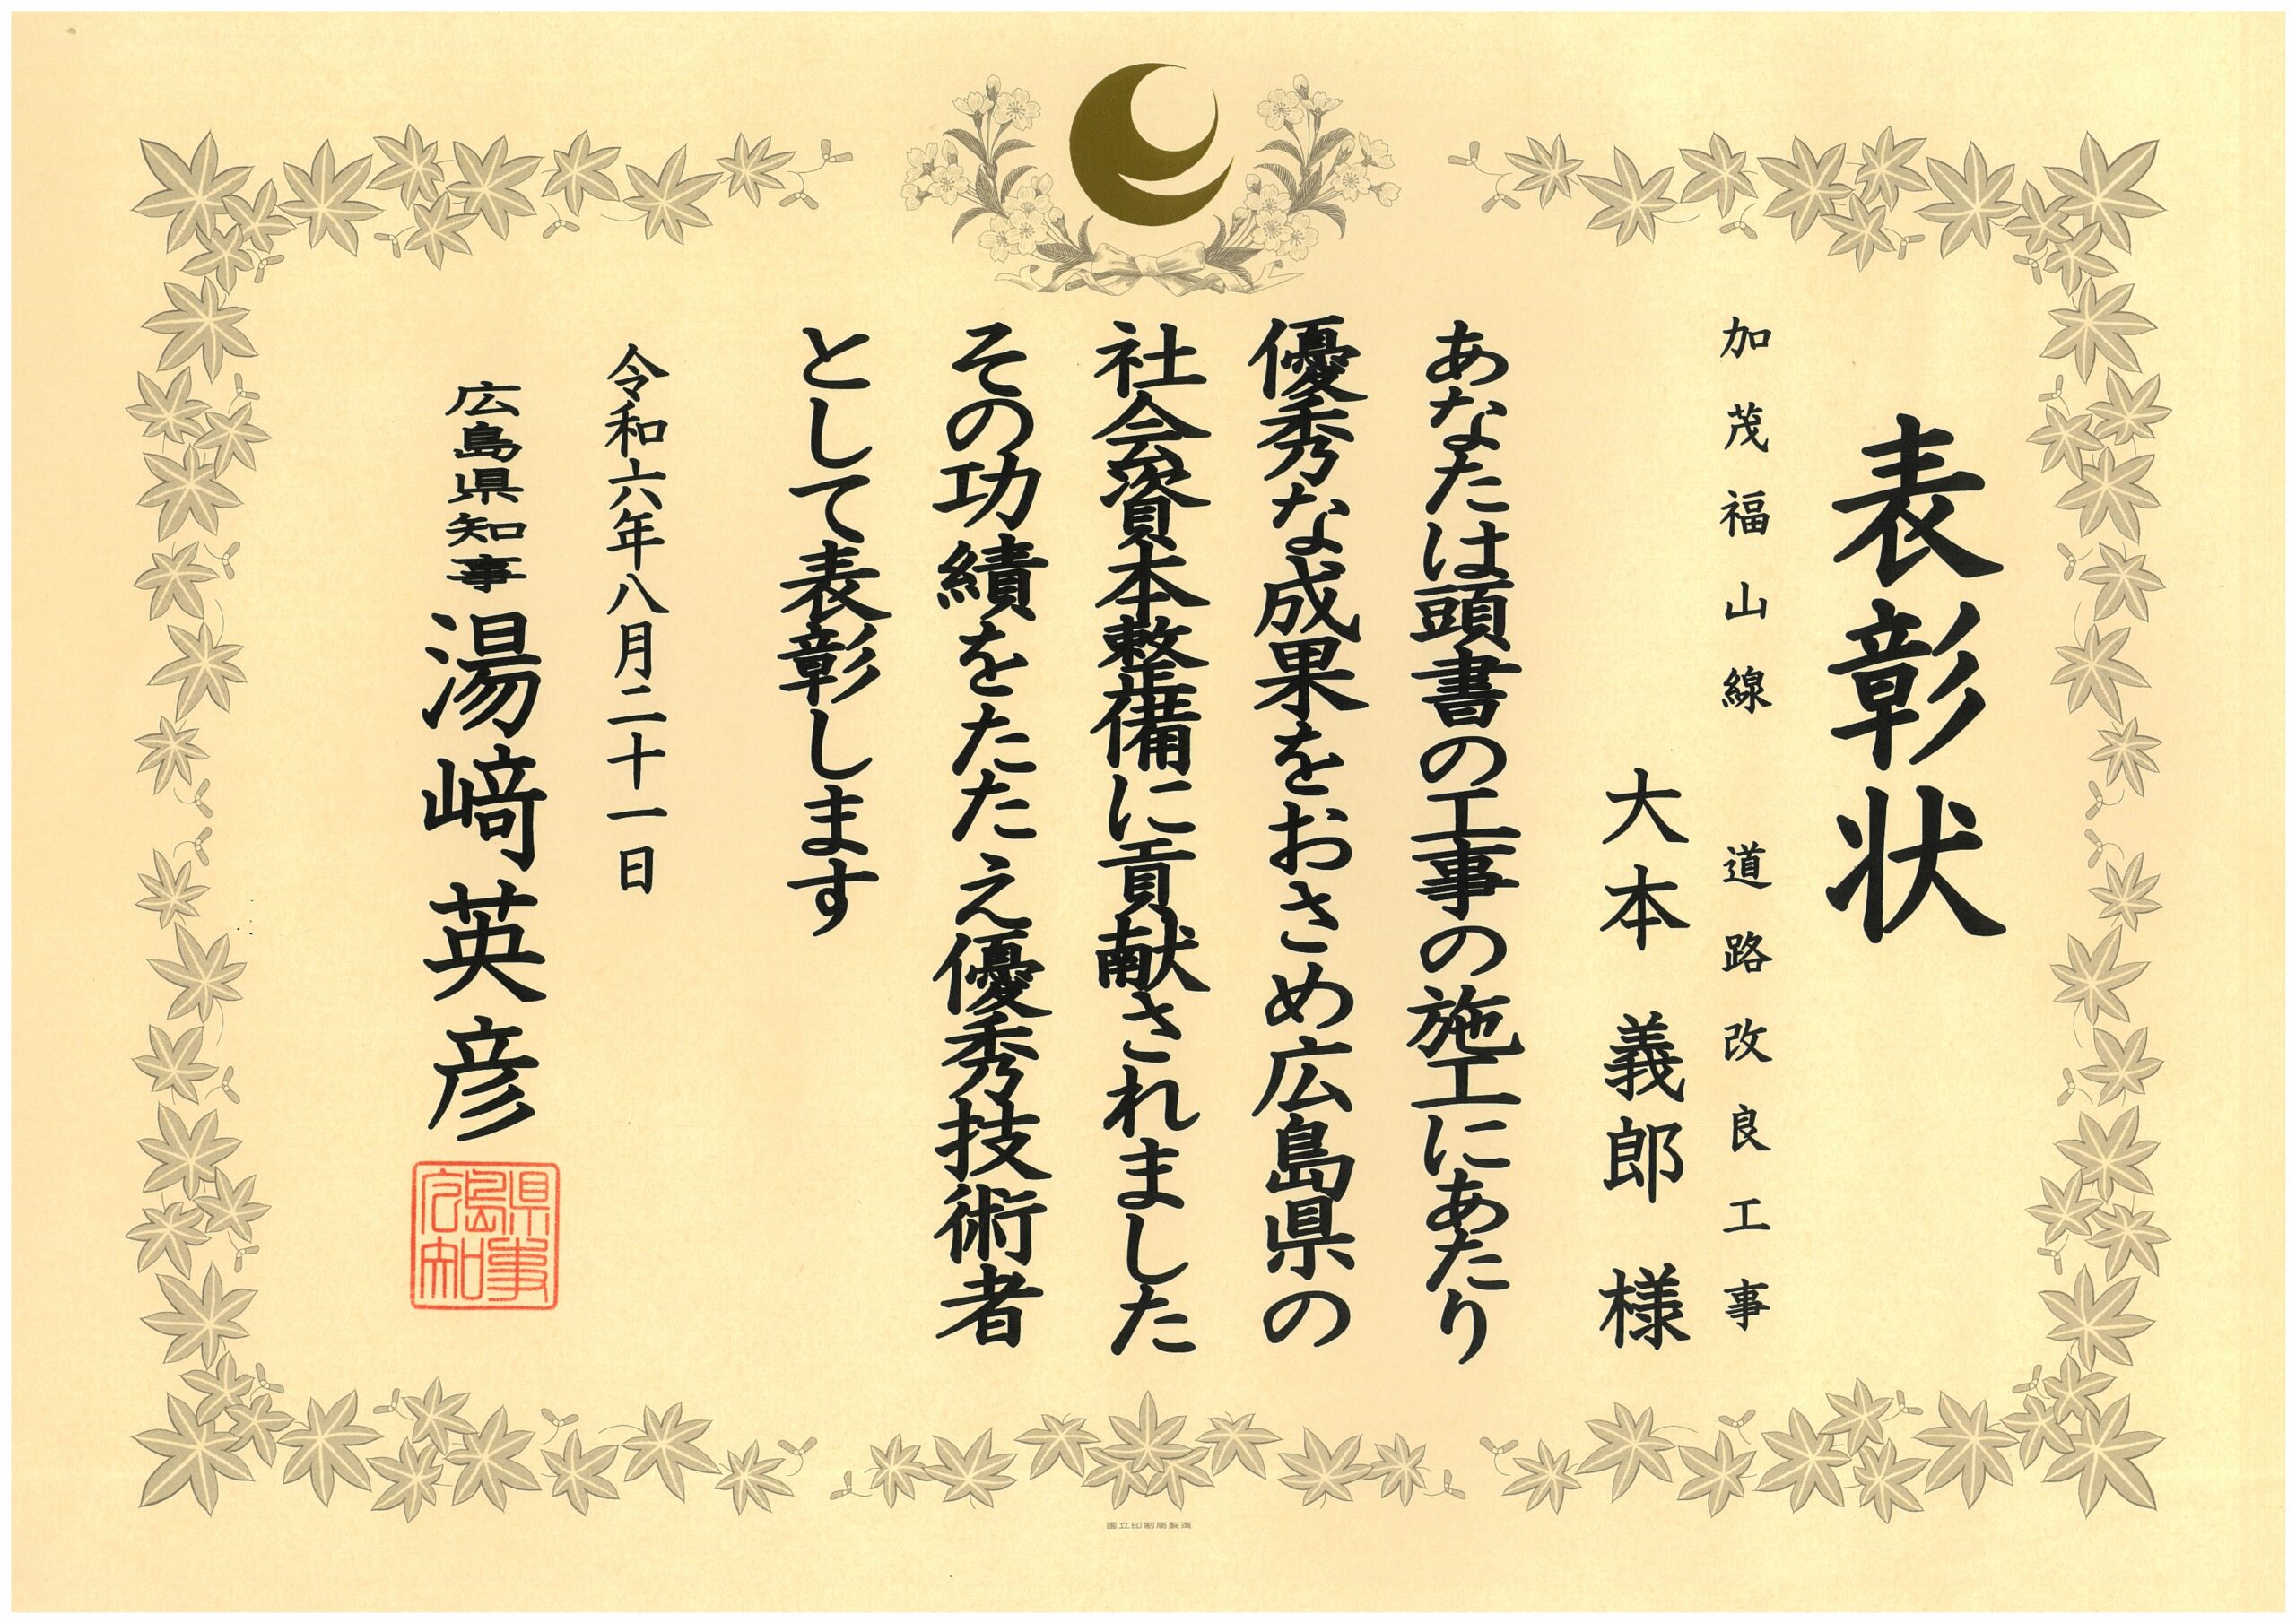 表彰状
加茂福山線　道路改良工事
大本　義郎　様
あなたは頭書の工事の施工にあたり
優秀な成果をおさめ広島県の
社会資本整備に貢献されました
その功績をたたえ優秀技術者
として表彰します
令和六年八月二十一日
広島県知事　湯﨑英彦
広島県知事
国立印刷局製造